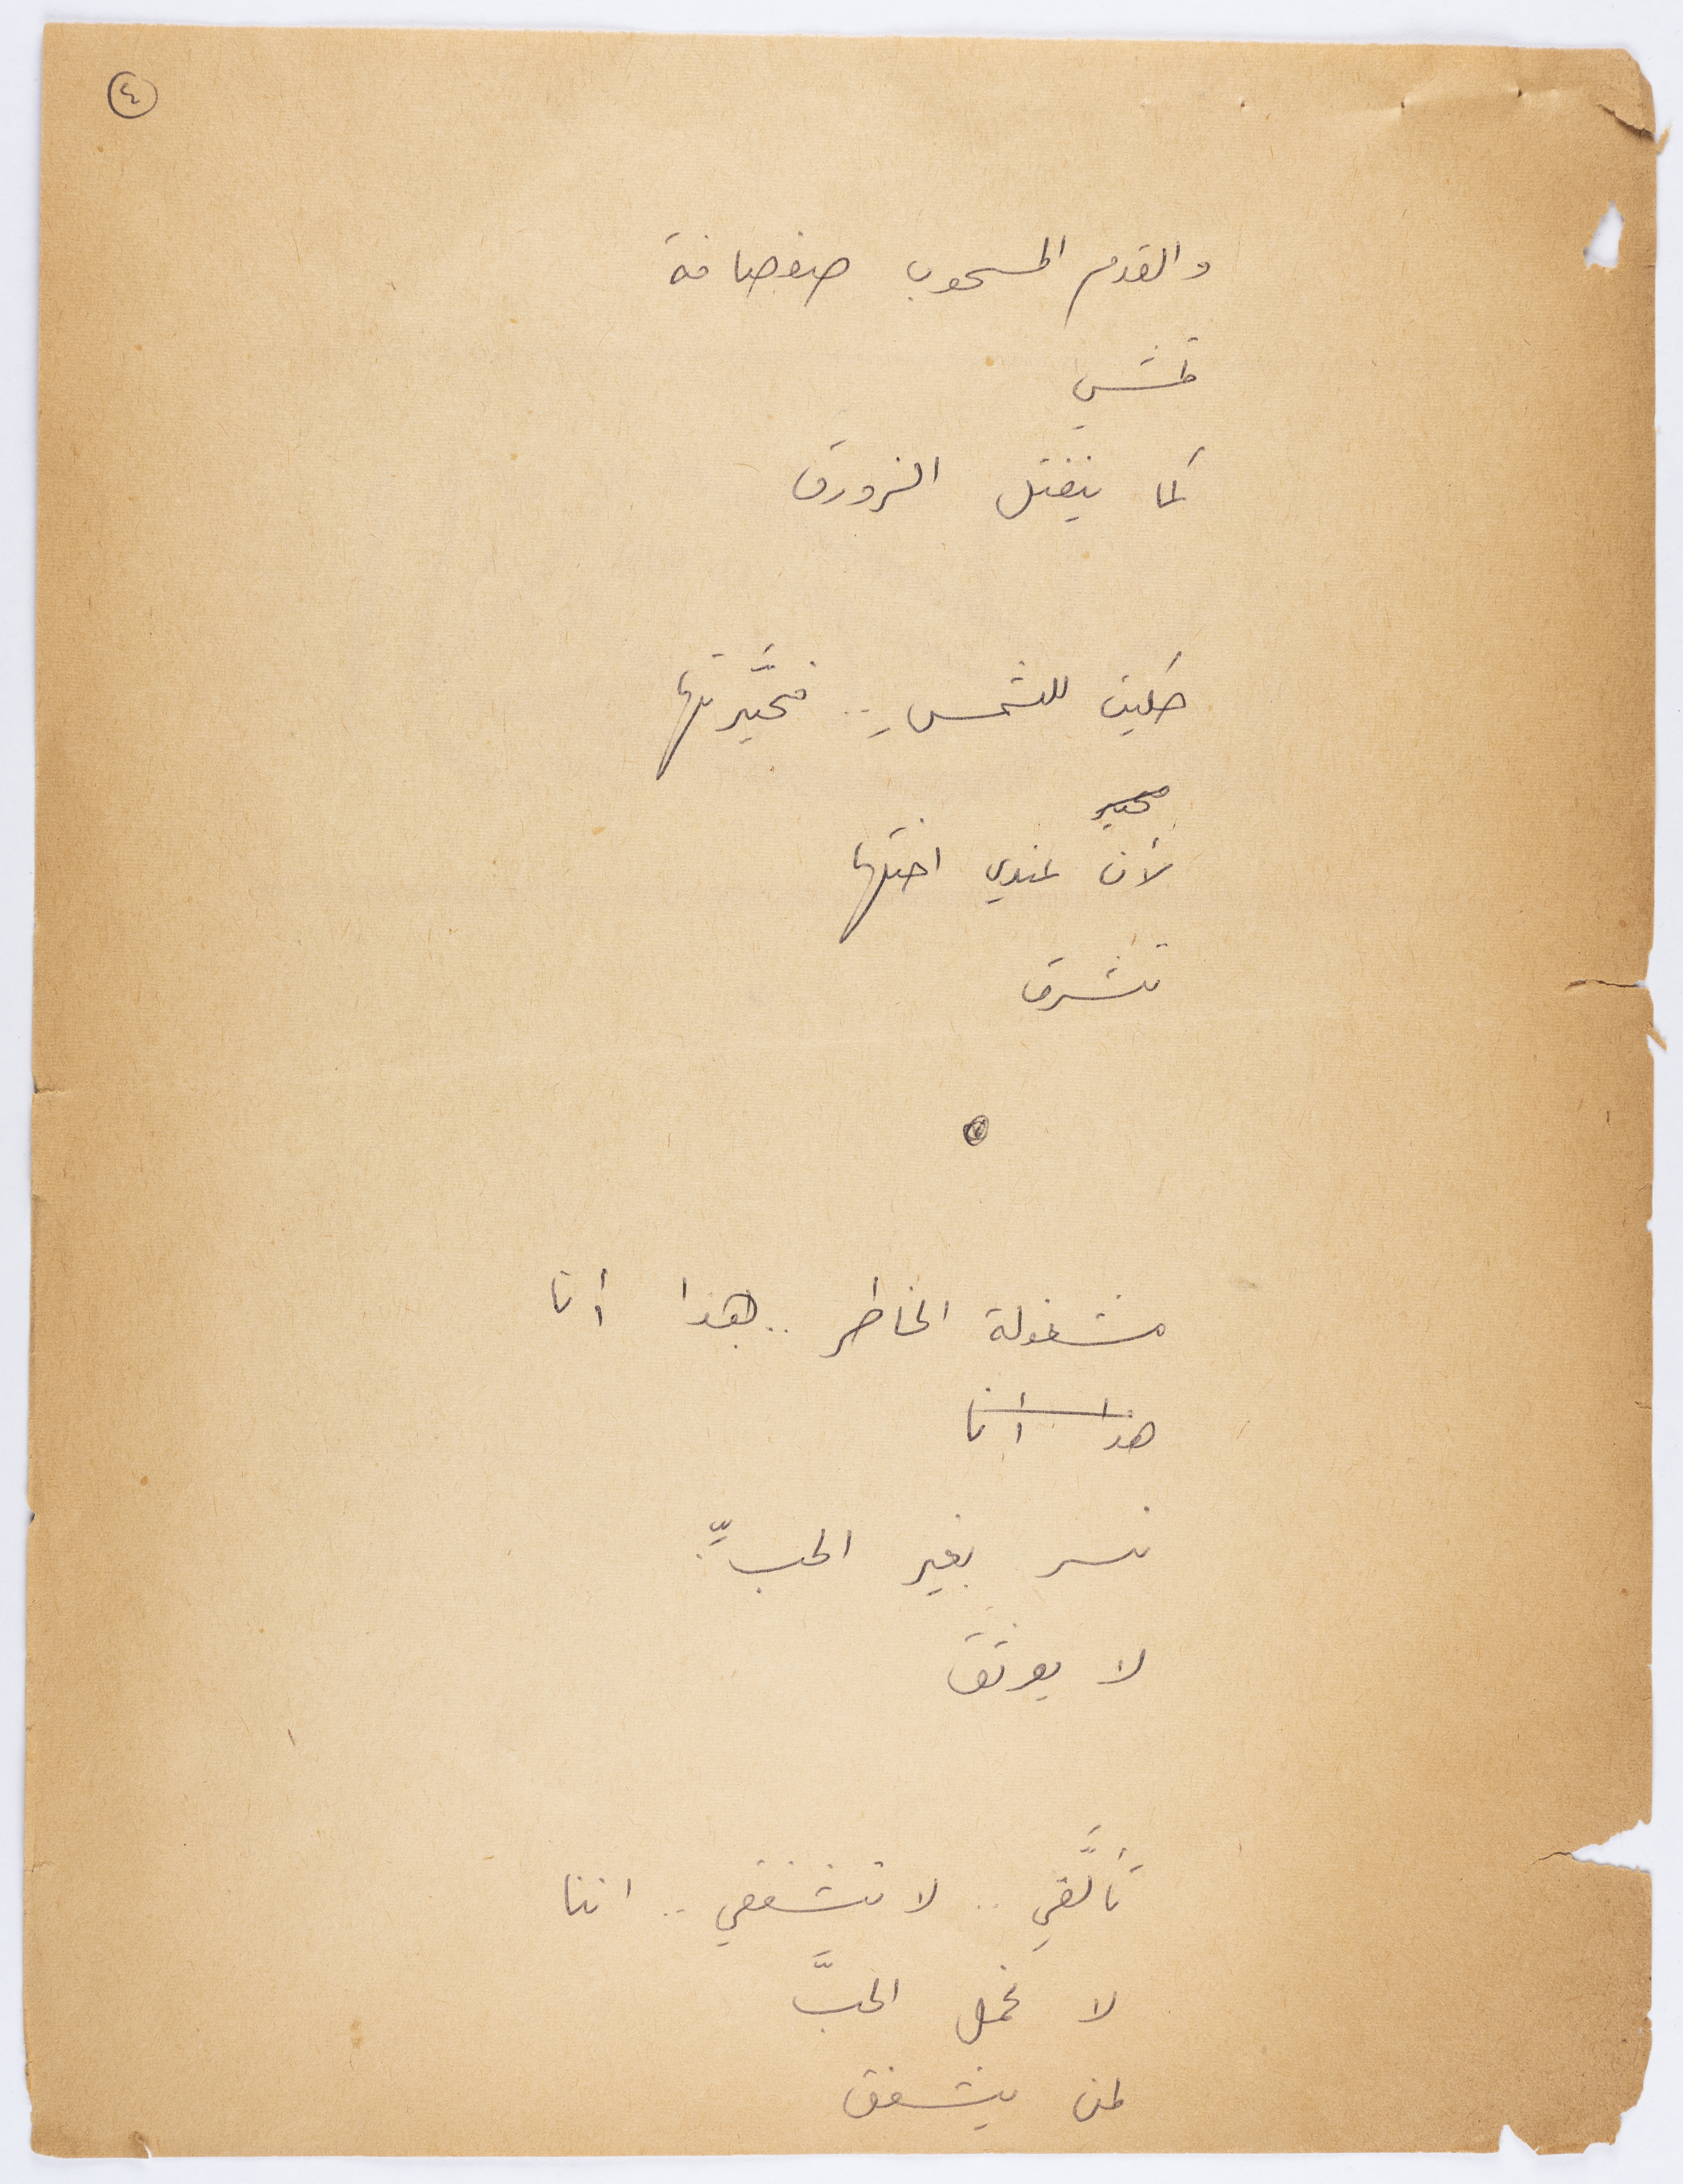 ٤
والقدم المسحوب صفصافة
تمشي
كما ينفتل الزورق
حكيت للشمسِ .. فحيَّرتها
محير
لأن عندي اختها
تشرق
مشغولة الخاطر .. هذا أنا
هذا أنا
نسر بغير الحبِّ
لا يعرتق
تألَّقي .. لا تشفقي .. اننا
لا نحمل الحبَّ
لمن يشفق